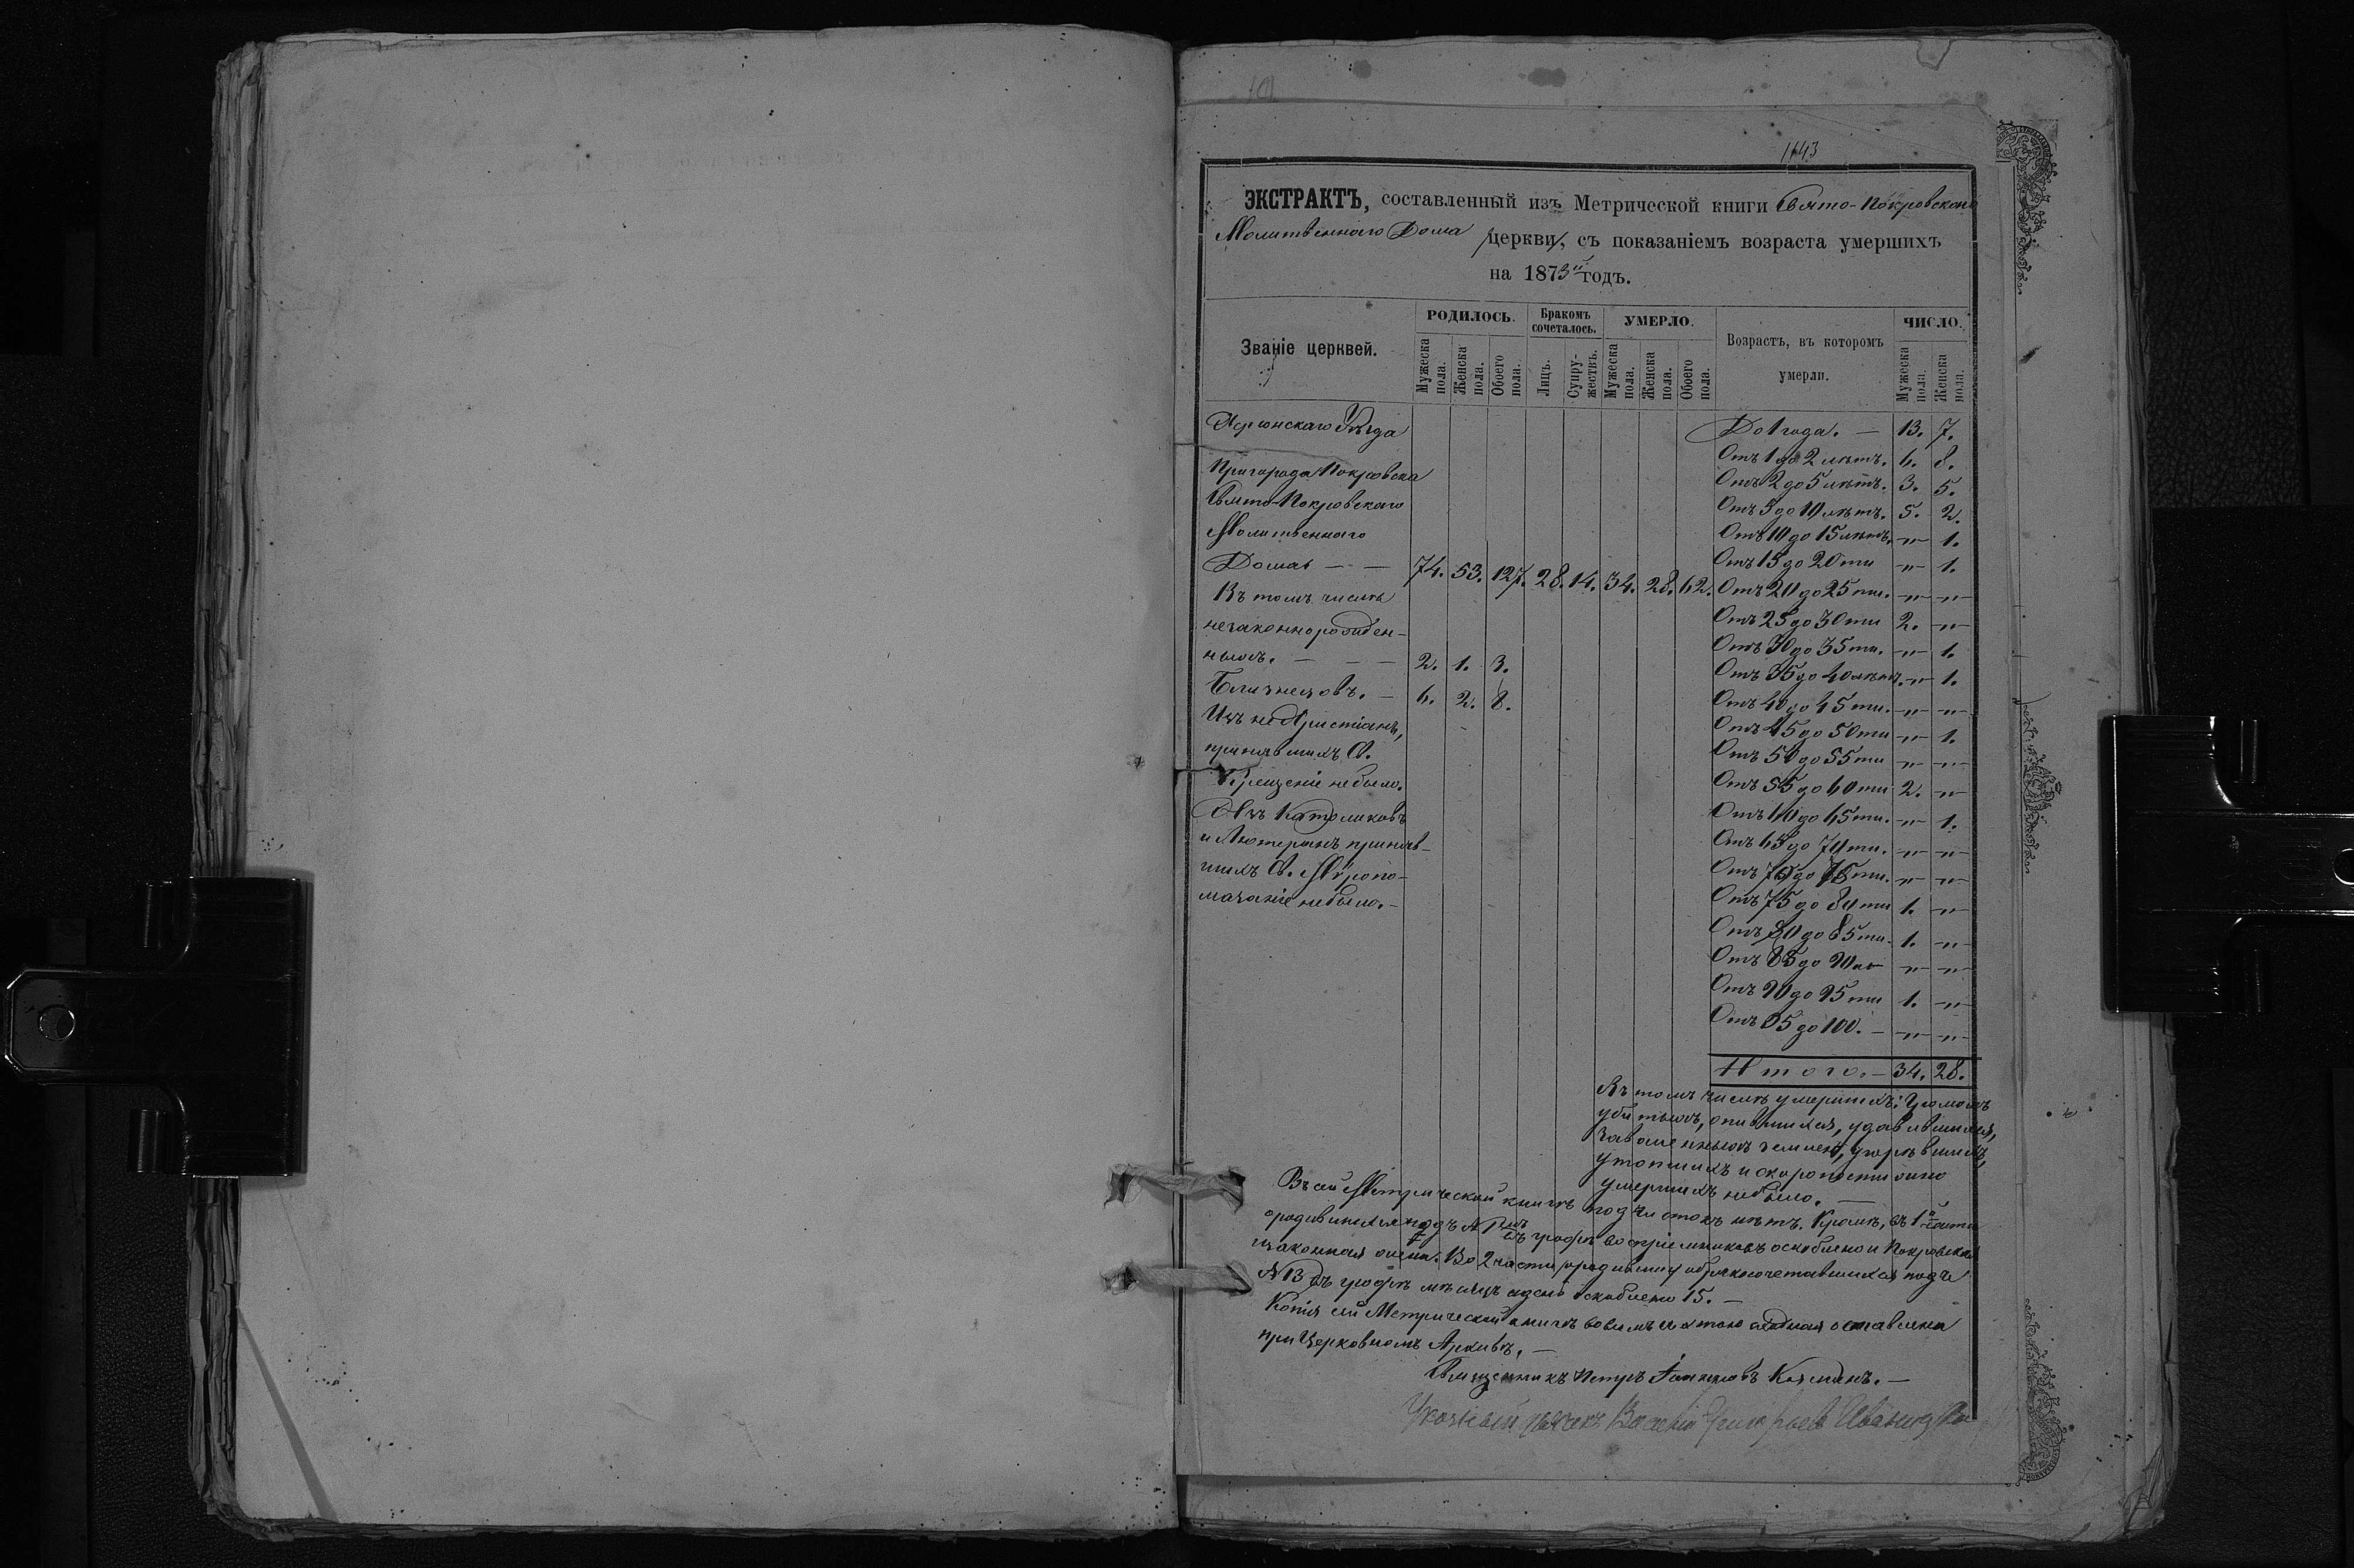 1143
ЭКСТРАКТЪ, составленный изъ Метрической книги Свято-Покровскаго
Молитвеннаго Дома церкви, съ показаніемъ возраста умершихъ
на 1873й годъ.
Званіе церквей.
РОДИЛОСЬ.
Бракомъ сочеталось.
УМЕРЛО.
Возрастъ, въ которомъ умерли.
ЧИСЛО.
Мужеска пола.
Женска пола.
Обоего пола.
Лицъ.
Супружествъ.
Мужеска пола.
Женска пола.
Обоего пола.
Мужеска пола.
Женска пола.
Херсонскаго Уѣзда
Пригорода Покровска
Свято-Покровскаго
Молитвеннаго
Дома — — 74. 53. 127. 28. 14. 34. 28. 62.
Въ томъ числѣ
незаконнорожден-
ныхъ. — — — 2. 1. 3.
Близнецовъ. — 6. 2. 8.
Изъ не Христіанъ,
принявшихъ Св.
Крещеніе не было.
Изъ Католиковъ
и Лютеранъ приняв-
шихъ Св. Мѵропо-
мазаніе не было. —
До 1 года. — 13. 7.
Отъ 1 до 2 лѣтъ. 6. 8.
Отъ 2 до 5 лѣтъ. 3. 5.
Отъ 5 до 10 лѣтъ. 5. 2.
Отъ 10 до 15 лѣтъ. -"- 1.
Отъ 15 до 20 ти -"- 1.
Отъ 20 до 25 ти. -"- -"-
Отъ 25 до 30 ти 2. -"-
Отъ 30 до 35 ти. -"- 1.
Отъ 35 до 40 лѣтъ. -"- 1.
Отъ 40 до 45 ти. -"- -"-
Отъ 45 до 50 ти -"- 1.
Отъ 50 до 55 ти -"- -"-
Отъ 55 до 60 ти 2. -"-
Отъ 60 до 65 ти. -"- 1.
Отъ 65 до 70 ти. -"- -"-
Отъ 70 до 75 ти. -"- -"-
Отъ 75 до 80 ти 1. -"-
Отъ 80 до 85 ти. 1. -"-
Отъ 85 до 90 -"- -"-
Отъ 90 до 95 ти 1. -"-
Отъ 95 до 100. — -"- -"-
Итого. — 34. 28.
Въ томъ числѣ умершихъ: Громомъ
убитыхъ, опившихся, удавившихся,
заваленныхъ землею, угорѣвшихъ,
утопшихъ и скоропостижно
умершихъ не было. —
Въ сей Метрической книгѣ подчистокъ нѣтъ. Кромѣ, въ 1й части
о родившихся подъ № въ графѣ воспріемниковъ оскоблено и Покровска
законная жена. Во 2 части о бракосочетавшихся подъ
№ 13 въ графѣ мѣсяцъ и день оскоблено 15. —
Копія сей Метрической книги во всемъ сходная оставлена
при Церковномъ Архивѣ. —
Священникъ Петръ Коcманъ. —
Указный Василій Григорьевъ